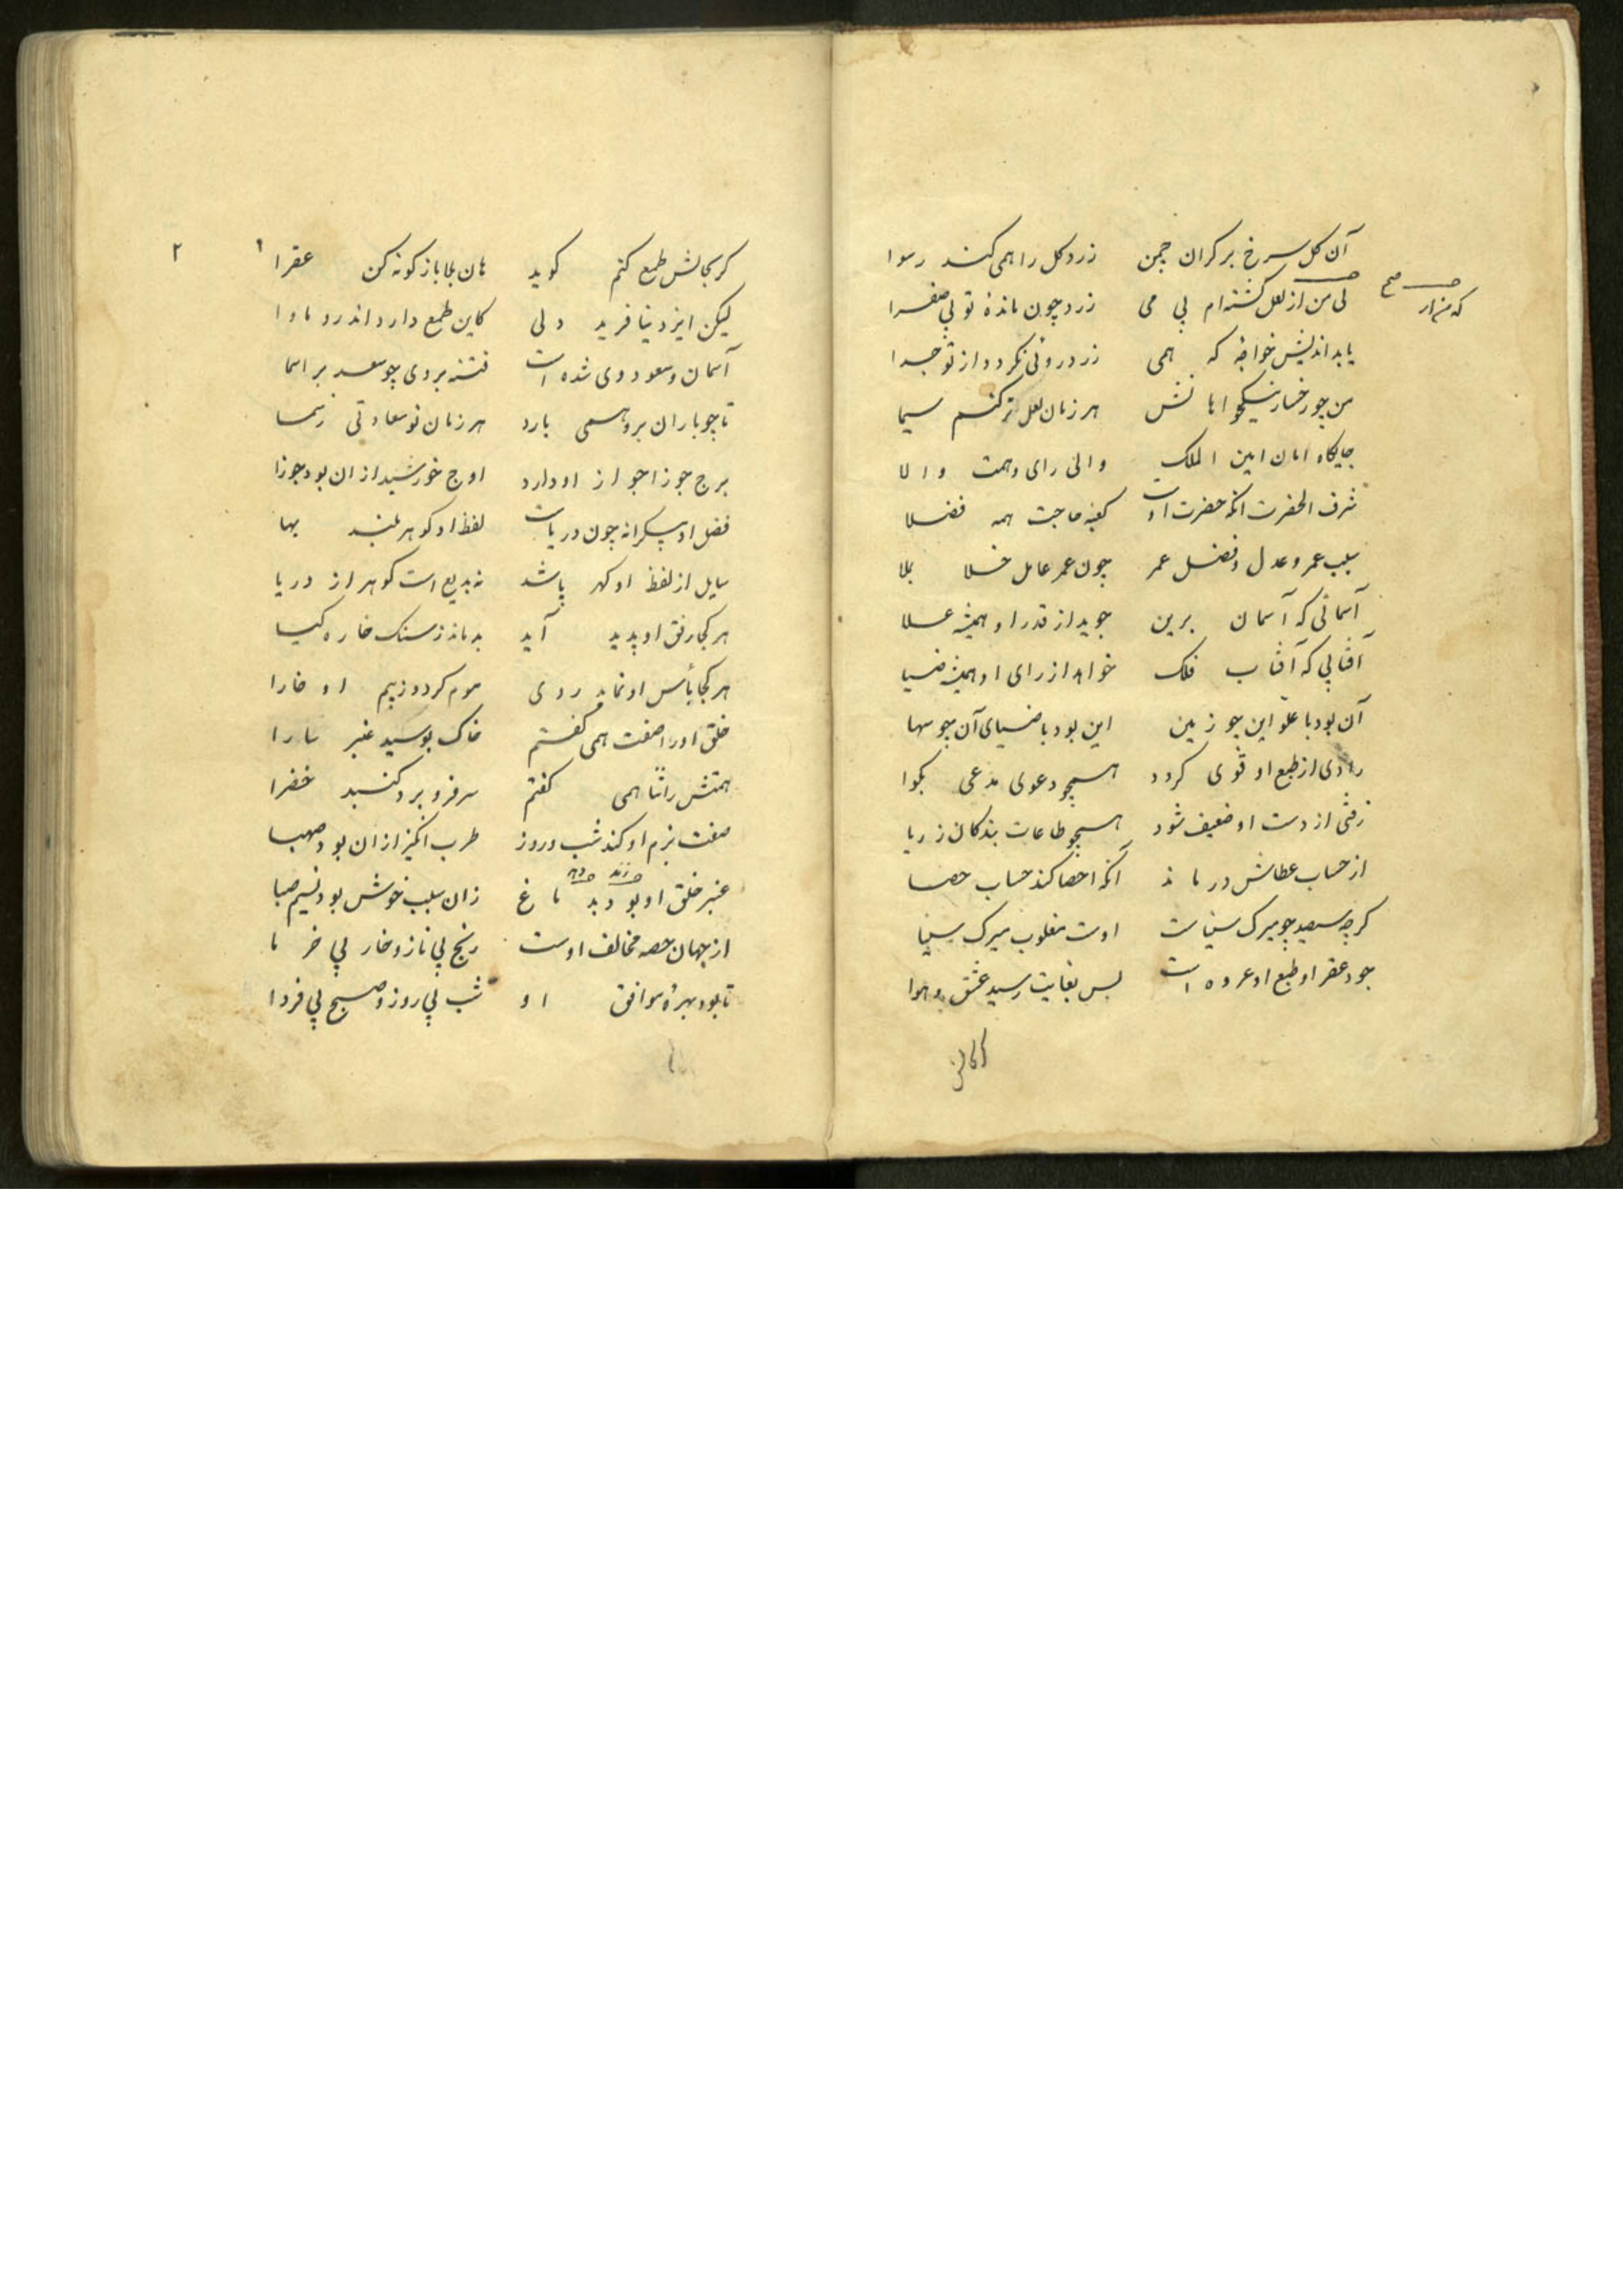 آن کل سرخ بر کران چمن زرد کل را همی کند رسوا
که هزار صح
لی من از لعل کشته‌ام بی می زرد چون مانده تو بی صفرا
یا بد اندیش خواجهٔ که همی زرد روئی نکردد از تو جدا
من چو رخسار نیکخواهانش هر زمان لعل تر کنم سیما
جایکاه امان امین الملک والی رای و همت والا
شرف الحضرت انکه حضرت اوست کعبه حاجت همه فضلا
سبب عمر و عدل و فضل عمر چون عمر عامل خلا بملا
آسمانی که آسمان برین جوید از قدر او همیشه علا
آفتابی که آفتاب فلک خواهد از رای او همیشه ضیا
آن بود با علو این چو زمین این بود با ضیای آن چو سها
رادی از طبع او قوی کردد همچو دعوی مدعی بکوا
زفتی از دست او ضعیف شود همچو طاعات بندکان ز ریا
از حساب عطاش درماند آنکه احصا کند حساب حصا
کرچه سیصد چو میرک سیناست اوست مغلوب میرک سینا
جود عفرا و طبع او عروه است بس بغایت رسید عشق و هوا
کر بجانش طمع کنم کوید هان بلا باز کونه کن عفرا
۲
لیکن ایزد نیافرید دلی کاین طمع دارد اندرو ماوا
آسمان و سعود وی شده است فتنه بر وی چو سعد بر اسما
تا چو باران برو همی بارد هر زمان نو سعادتی ز سما
برج جوزا جواز او دارد اوج خورشید از ان بود جوزا
فضل او بیکرانه چون دریاست لفظ او کوهر بلند بها
سایل از لفظ او کهر پاشد نه بدیع است کوهر از دریا
هر کجا رفق او پدید آید بدماند ز سنک خاره کیا
هر کجا بأس او نماید روی موم کردد ز بیم او خارا
خلق او را صفت همی کفتم خاک بوسید عنبر سارا
همتش را ثنا همی کفتم سر فرو برد کنبد خضرا
صفت بزم او کند شب و روز طرب انکیز از ان بود صهبا
عنبر خلق او بوید باغ زان سبب خوش بود نسیم صبا
از جهان حصه مخالف اوست رنج بی ناز و خار بی خرما
تا بود بهره موافق او شب بی روز و صبح بی فردا